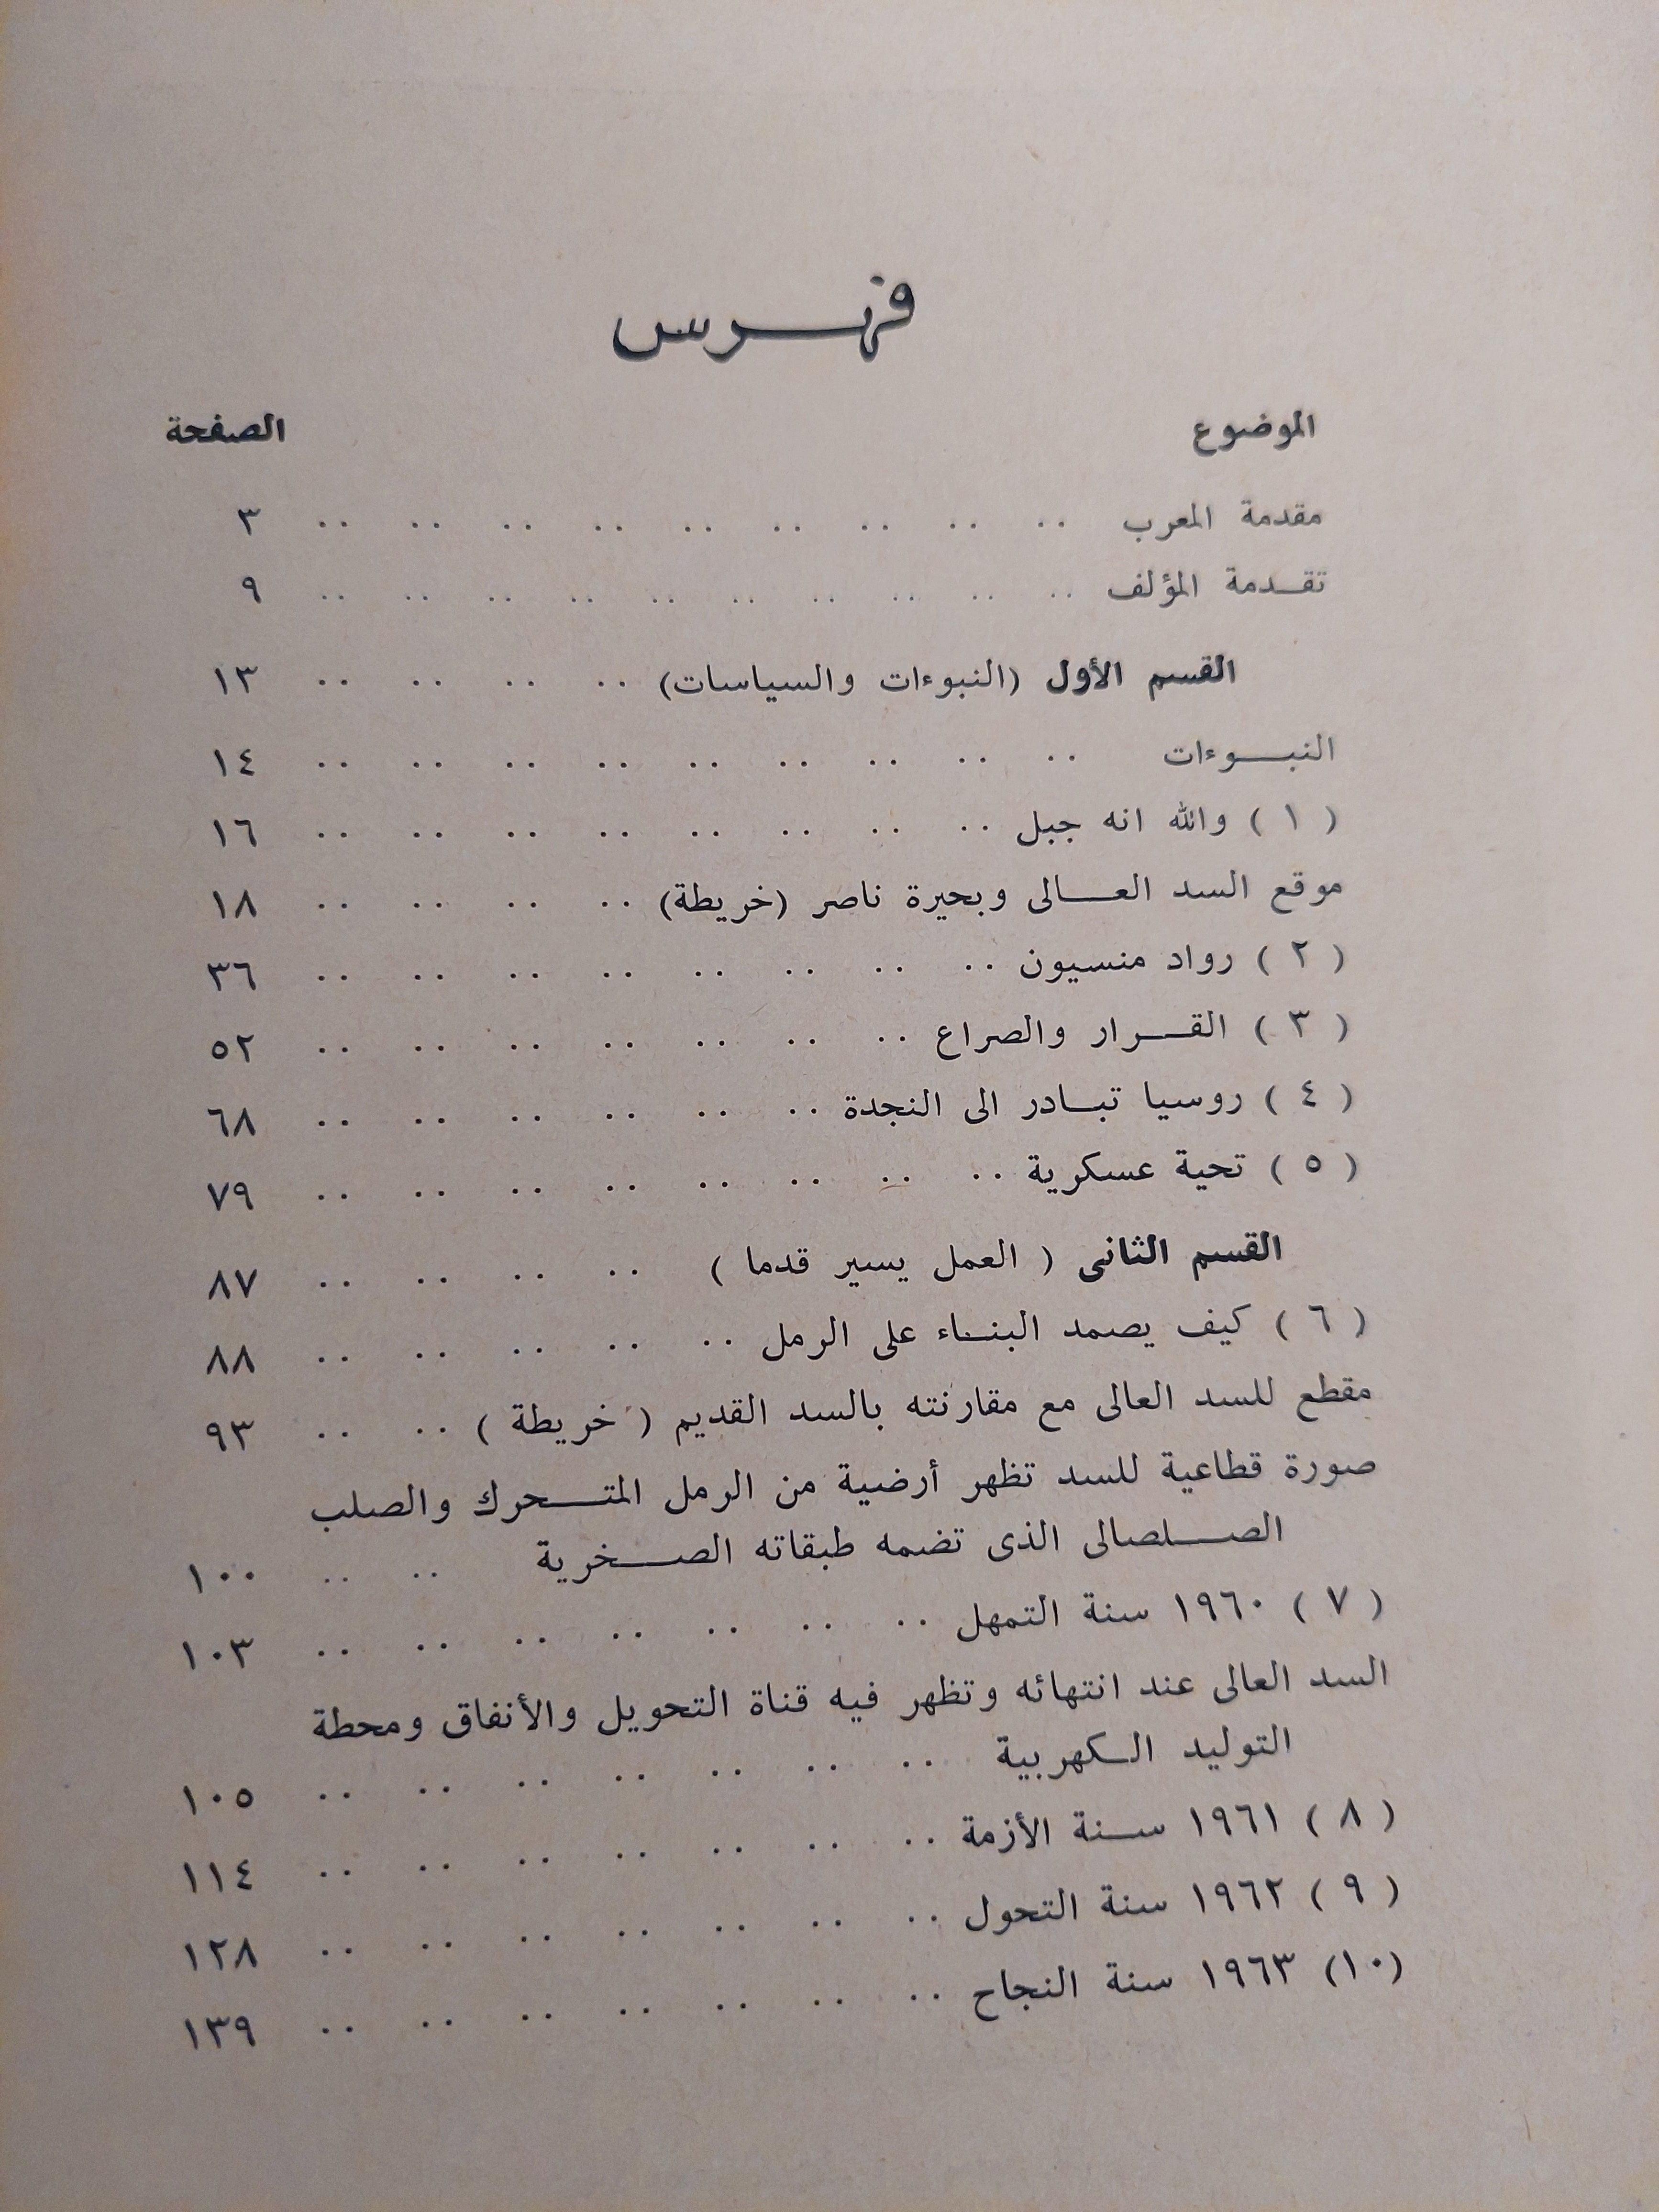 فهرس
الموضوع الصفحة
مقدمة المعرب .. .. .. .. .. .. .. .. .. ٣
تقدمة المؤلف .. .. .. .. .. .. .. .. .. .. ٩
القسم الأول (النبوءات والسياسات) .. .. .. .. ١٣
النبوءات .. .. .. .. .. .. .. .. .. ١٤
( ١ ) والله انه جبل .. .. .. .. .. .. .. .. ١٦
موقع السد العالى وبحيرة ناصر (خريطة) .. .. .. .. ١٨
( ٢ ) رواد منسيون .. .. .. .. .. .. .. .. ٣٦
( ٣ ) القرار والصراع .. .. .. .. .. .. .. ٥٢
( ٤ ) روسيا تبادر الى النجدة .. .. .. .. .. .. ٦٨
( ٥ ) تحية عسكرية .. .. .. .. .. .. .. .. ٧٩
القسم الثانى ( العمل يسير قدما ) .. .. .. .. ٨٧
( ٦ ) كيف يصمد البناء على الرمل .. .. .. .. .. ٨٨
مقطع للسد العالى مع مقارنته بالسد القديم ( خريطة ) .. .. ٩٣
صورة قطاعية للسد تظهر أرضية من الرمل المتحرك والصلب
الصلصالى الذى تضمه طبقاته الصخرية .. .. ١٠٠
( ٧ ) ١٩٦٠ سنة التمهل .. .. .. .. .. .. .. ١٠٣
السد العالى عند انتهائه وتظهر فيه قناة التحويل والأنفاق ومحطة
التوليد الكهربية .. .. .. .. .. .. .. ١٠٥
( ٨ ) ١٩٦١ سنة الأزمة .. .. .. .. .. .. .. ١١٤
( ٩ ) ١٩٦٢ سنة التحول .. .. .. .. .. .. .. ١٢٨
(١٠) ١٩٦٣ سنة النجاح .. .. .. .. .. .. .. ١٣٩